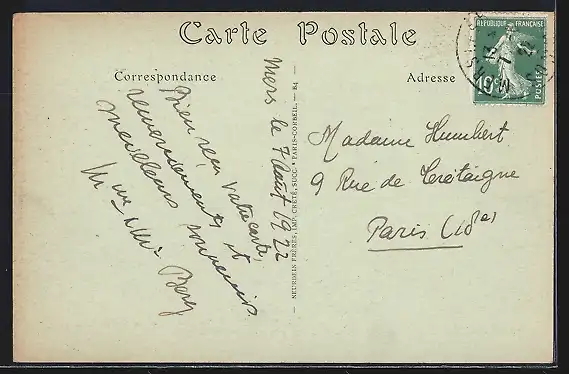 Carte Postale
Correspondance
Adresse
REPUBLIQUE FRANÇAISE
10c
POSTES
Mers le 7 Août 1922
Bien reçu votre carte,
remerciements et
meilleurs souvenirs.
Mme & Mr
Madame Humbert
9 Rue de Crétaigne
Paris (18e)
NEURDEIN FRÈRES, IMP. CRÉTÉ, SUCC. - PARIS-CORBEIL. - 84 -